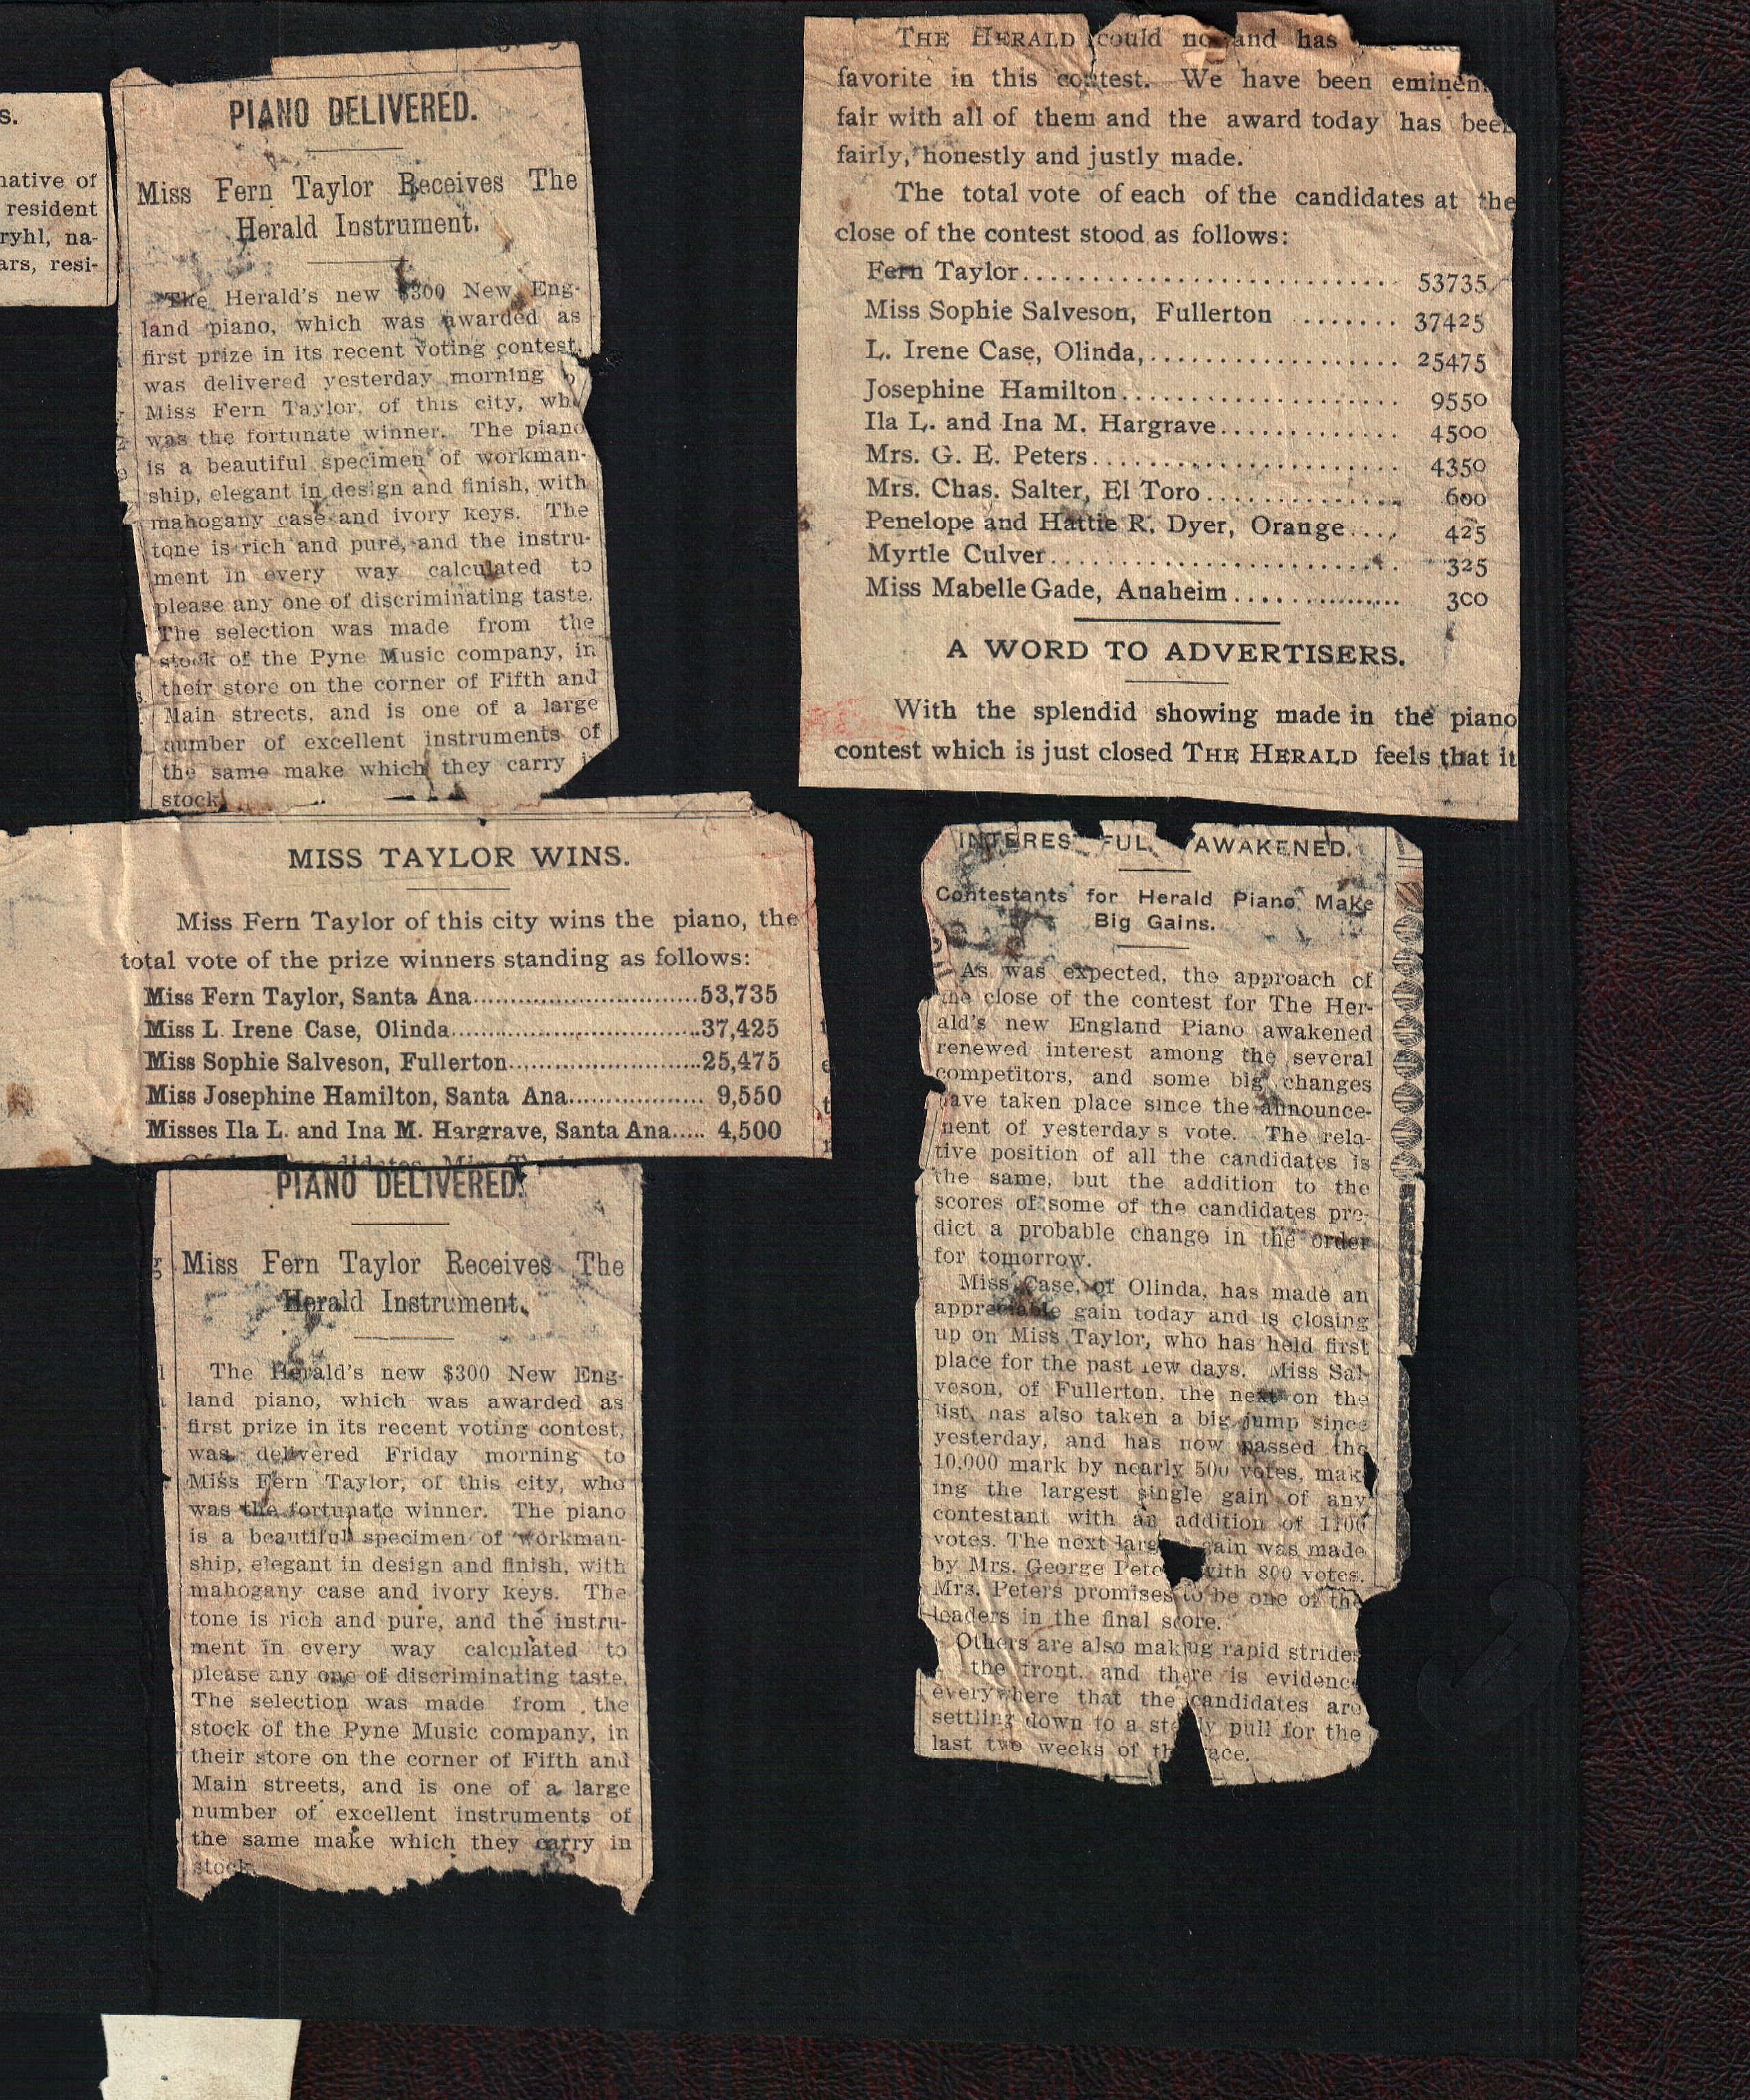 s.
native of
resident
ryhl, na-
ars, resi-
PIANO DELIVERED.
Miss Fern Taylor Receives The
Herald Instrument.
The Herald's new $300 New Eng-
land piano, which was awarded as
first prize in its recent voting contest,
was delivered yesterday morning
Miss Fern Taylor, of this city, who
was the fortunate winner. The piano
is a beautiful specimen of workman-
ship, elegant in design and finish, with
mahogany case and ivory keys. The
tone is rich and pure, and the instru-
ment in every way calculated to
please any one of discriminating taste.
The selection was made from the
stock of the Pyne Music company, in
their store on the corner of Fifth and
Main streets, and is one of a large
number of excellent instruments of
the same make which they carry
stock.
MISS TAYLOR WINS.
Miss Fern Taylor of this city wins the piano, the
total vote of the prize winners standing as follows:
Miss Fern Taylor, Santa Ana............................53,735
Miss L. Irene Case, Olinda...............................37,425
Miss Sophie Salveson, Fullerton........................25,475
Miss Josephine Hamilton, Santa Ana................. 9,550
Misses Ila L. and Ina M. Hargrave, Santa Ana..... 4,500
PIANO DELIVERED.
Miss Fern Taylor Receives The
Herald Instrument.
The Herald's new $300 New Eng-
land piano, which was awarded as
first prize in its recent voting contest,
was delivered Friday morning to
Miss Fern Taylor, of this city, who
was the fortunate winner. The piano
is a beautiful specimen of workman-
ship, elegant in design and finish, with
mahogany case and ivory keys. The
tone is rich and pure, and the instru-
ment in every way calculated to
please any one of discriminating taste.
The selection was made from the
stock of the Pyne Music company, in
their store on the corner of Fifth and
Main streets, and is one of a large
number of excellent instruments of
the same make which they carry in
stock.
THE HERALD could no and has
favorite in this contest. We have been eminen
fair with all of them and the award today has been
fairly, honestly and justly made.
The total vote of each of the candidates at the
close of the contest stood as follows:
Fern Taylor.................................. 53735
Miss Sophie Salveson, Fullerton ....... 37425
L. Irene Case, Olinda,...................... 25475
Josephine Hamilton........................ 9550
Ila L. and Ina M. Hargrave............... 4500
Mrs. G. E. Peters........................... 4350
Mrs. Chas. Salter, El Toro................ 600
Penelope and Hattie R. Dyer, Orange.... 425
Myrtle Culver............................... 325
Miss Mabelle Gade, Anaheim.............. 300
A WORD TO ADVERTISERS.
With the splendid showing made in the piano
contest which is just closed THE HERALD feels that it
INTERES FUL AWAKENED.
Contestants for Herald Piano Make
Big Gains.
As was expected, the approach of
the close of the contest for The Her-
ald's new England Piano awakened
renewed interest among the several
competitors, and some big changes
have taken place since the announce-
ment of yesterday's vote. The rela-
tive position of all the candidates is
the same, but the addition to the
scores of some of the candidates pre-
dict a probable change in the order
for tomorrow.
Miss Case, of Olinda, has made an
appreciable gain today and is closing
up on Miss Taylor, who has held first
place for the past few days. Miss Sal-
veson, of Fullerton, the next on the
list, has also taken a big jump since
yesterday, and has now passed the
10,000 mark by nearly 500 votes, mak-
ing the largest single gain of any
contestant with an addition of 1100
votes. The next larg ain was made
by Mrs. George Pete with 800 votes.
Mrs. Peters promises to be one of the
leaders in the final score.
Others are also making rapid strides
the front, and there is evidence
everywhere that the candidates are
settling down to a steady pull for the
last two weeks of th ace.